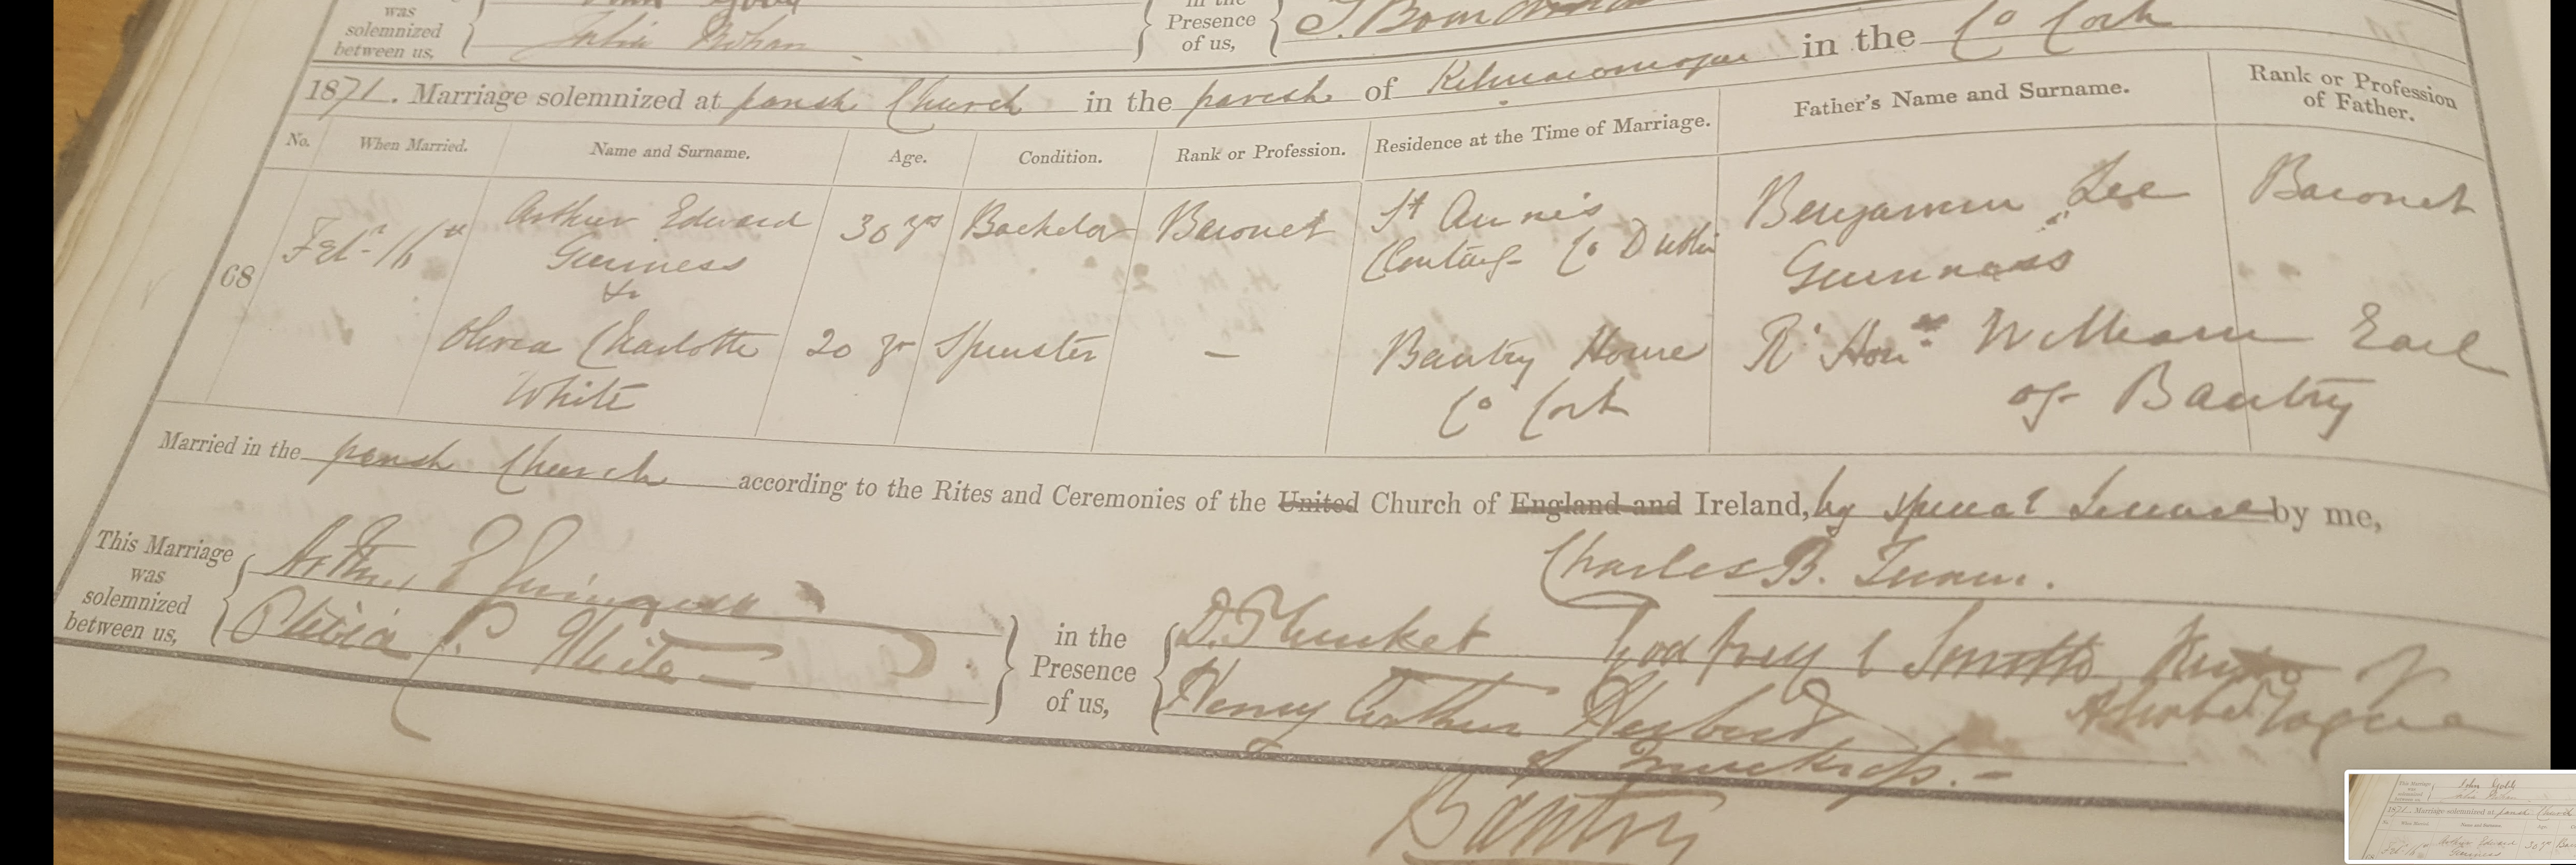 was
solemnized
between us,
in the
Presence
of us,
1871. Marriage solemnized at parish Church in the parish of Kilmacomogue in the Co Cork
No. When Married. Name and Surname. Age. Condition. Rank or Profession. Residence at the Time of Marriage. Father's Name and Surname. Rank or Profession of Father.
68 Feby 16th Arthur Edward Guinness 30 yrs Bachelor Baronet St Anne's Clontarf Co Dublin Benjamin Lee Guinness Baronet
&
Olivia Charlotte White 20 yr Spinster – Bantry House Co Cork Rt Honble William Earl of Bantry
Married in the parish Church according to the Rites and Ceremonies of the United Church of England and Ireland, by special License by me,
Charles B.
This Marriage was solemnized between us,
Arthur E Guinness
Olivia C. White
in the Presence of us,
D. Plunket
Henry Arthur Herbert
of Muckross.-
Bantry